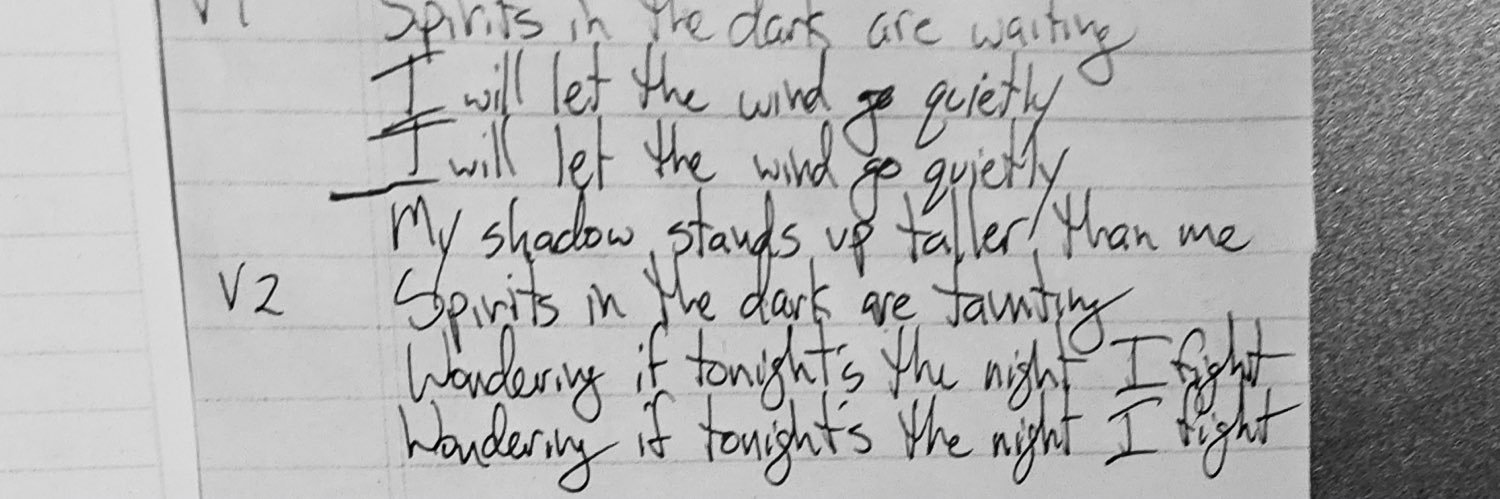 V1 Spirits in the dark are waiting
I will let the wind go quietly
I will let the wind go quietly
My shadow stands up taller than me
V2 Spirits in the dark are taunting
Wondering if tonight's the night I fight
Wondering if tonight's the night I fight